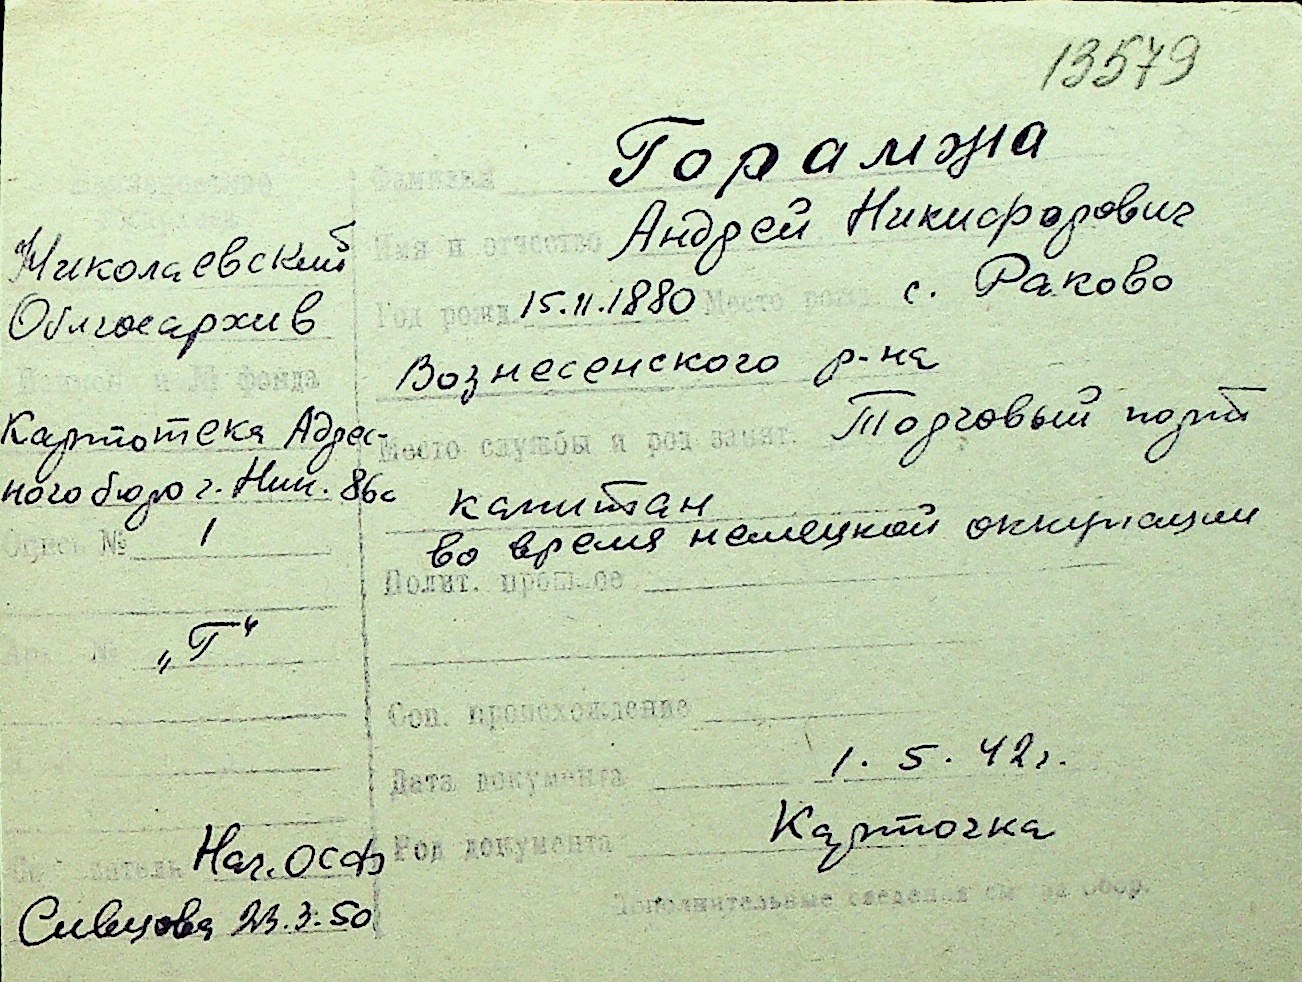 13579
Фамилия Горамжа
Имя и отчество Андрей Никифорович
Год рожд. 15.11.1880 Место рожд. с. Раково
Вознесенского р-на
Место службы и род занят. Торговый порт
капитан
во время немецкой оккупации
Полит. прошлое
Соц. происхождение
Дата документа 1.5.42г.
Род документа Карточка
Дополнительные сведения см. на обор.
Николаевский
Облгосархив
фонда
Картотека Адрес-
ного бюро г. Ник. 86с
Опись № 1
„Г“
Нач. ОСФ
23.3.50